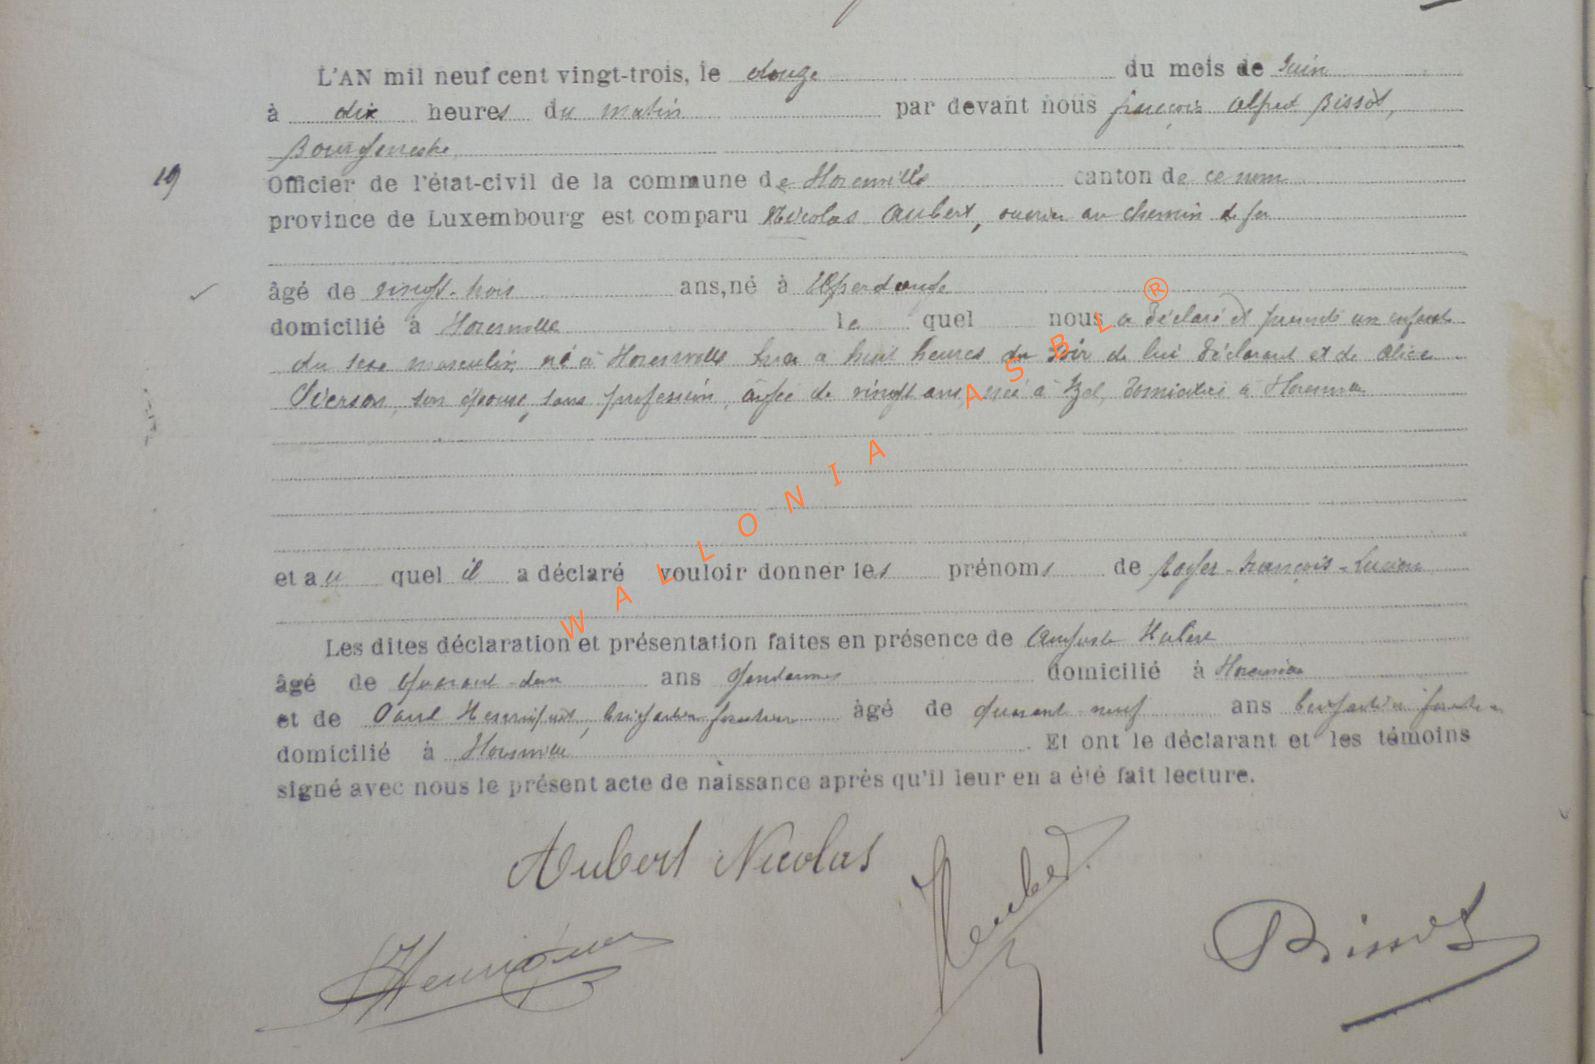 L'AN mil neuf cent vingt-trois, le douze du mois de Juin
à dix heures du matin par devant nous françois Alfred Bissot,
Bourgmestre
19
Officier de l'état-civil de la commune de Florenville canton de ce nom
province de Luxembourg est comparu Nicolas Aubert, ouvrier au chemin de fer
âgé de vingt-trois ans, né à
domicilié à Florenville le quel nous a déclaré et présenté un enfant
du sexe masculin né à Florenville hier à huit heures du soir de lui déclarant et de Alice
son épouse, sans profession, âgée de vingt ans, née à Izel, domiciliée à Florenville
et au quel il a déclaré vouloir donner les prénoms de Roger-François-Lucien
Les dites déclaration et présentation faites en présence de Auguste
âgé de Quarant-deux ans Gendarmes domicilié à Florenville
et de Paul âgé de Quarant neuf ans
domicilié à Florenville. Et ont le déclarant et les témoins
signé avec nous le présent acte de naissance après qu'il leur en a été fait lecture.
Aubert Nicolas
Bissot
WALLONIA ASBL ®